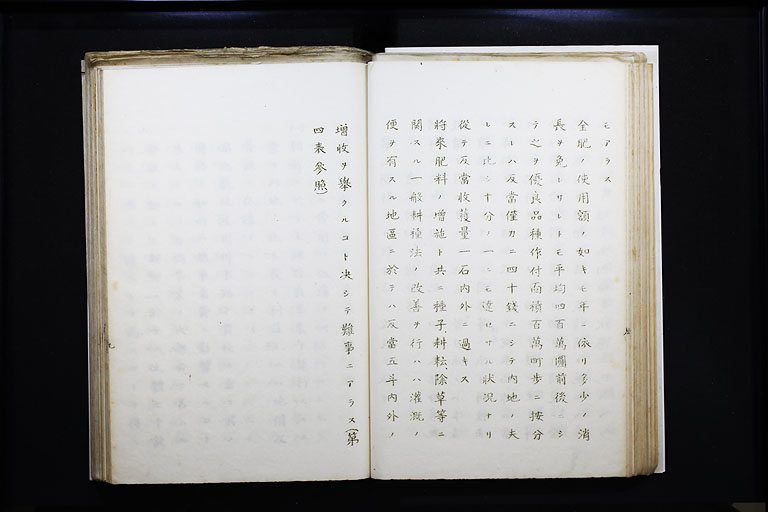 モアラス
金肥ノ使用額ノ如キモ年ニ依リ多少ノ消
長ヲ免レサレトモ平均四百萬圓前後ニシ
テ之ヲ優良品種作付面積百萬町歩ニ按分
スレハ反當僅カニ四十錢ニシテ内地ノ夫
レニ比シ十分ノ一ニモ達セサル状況ナリ
從テ反當收穫量一石内外ニ過キス
將來肥料ノ増施ト共ニ種子、耕耘、除草等ニ
關スル一般耕種法ノ改善ヲ行ハハ灌漑ノ
便ヲ有スル地區ニ於テハ反當五斗内外ノ
増收ヲ擧クルコト決シテ難事ニアラス(第
四表參照)